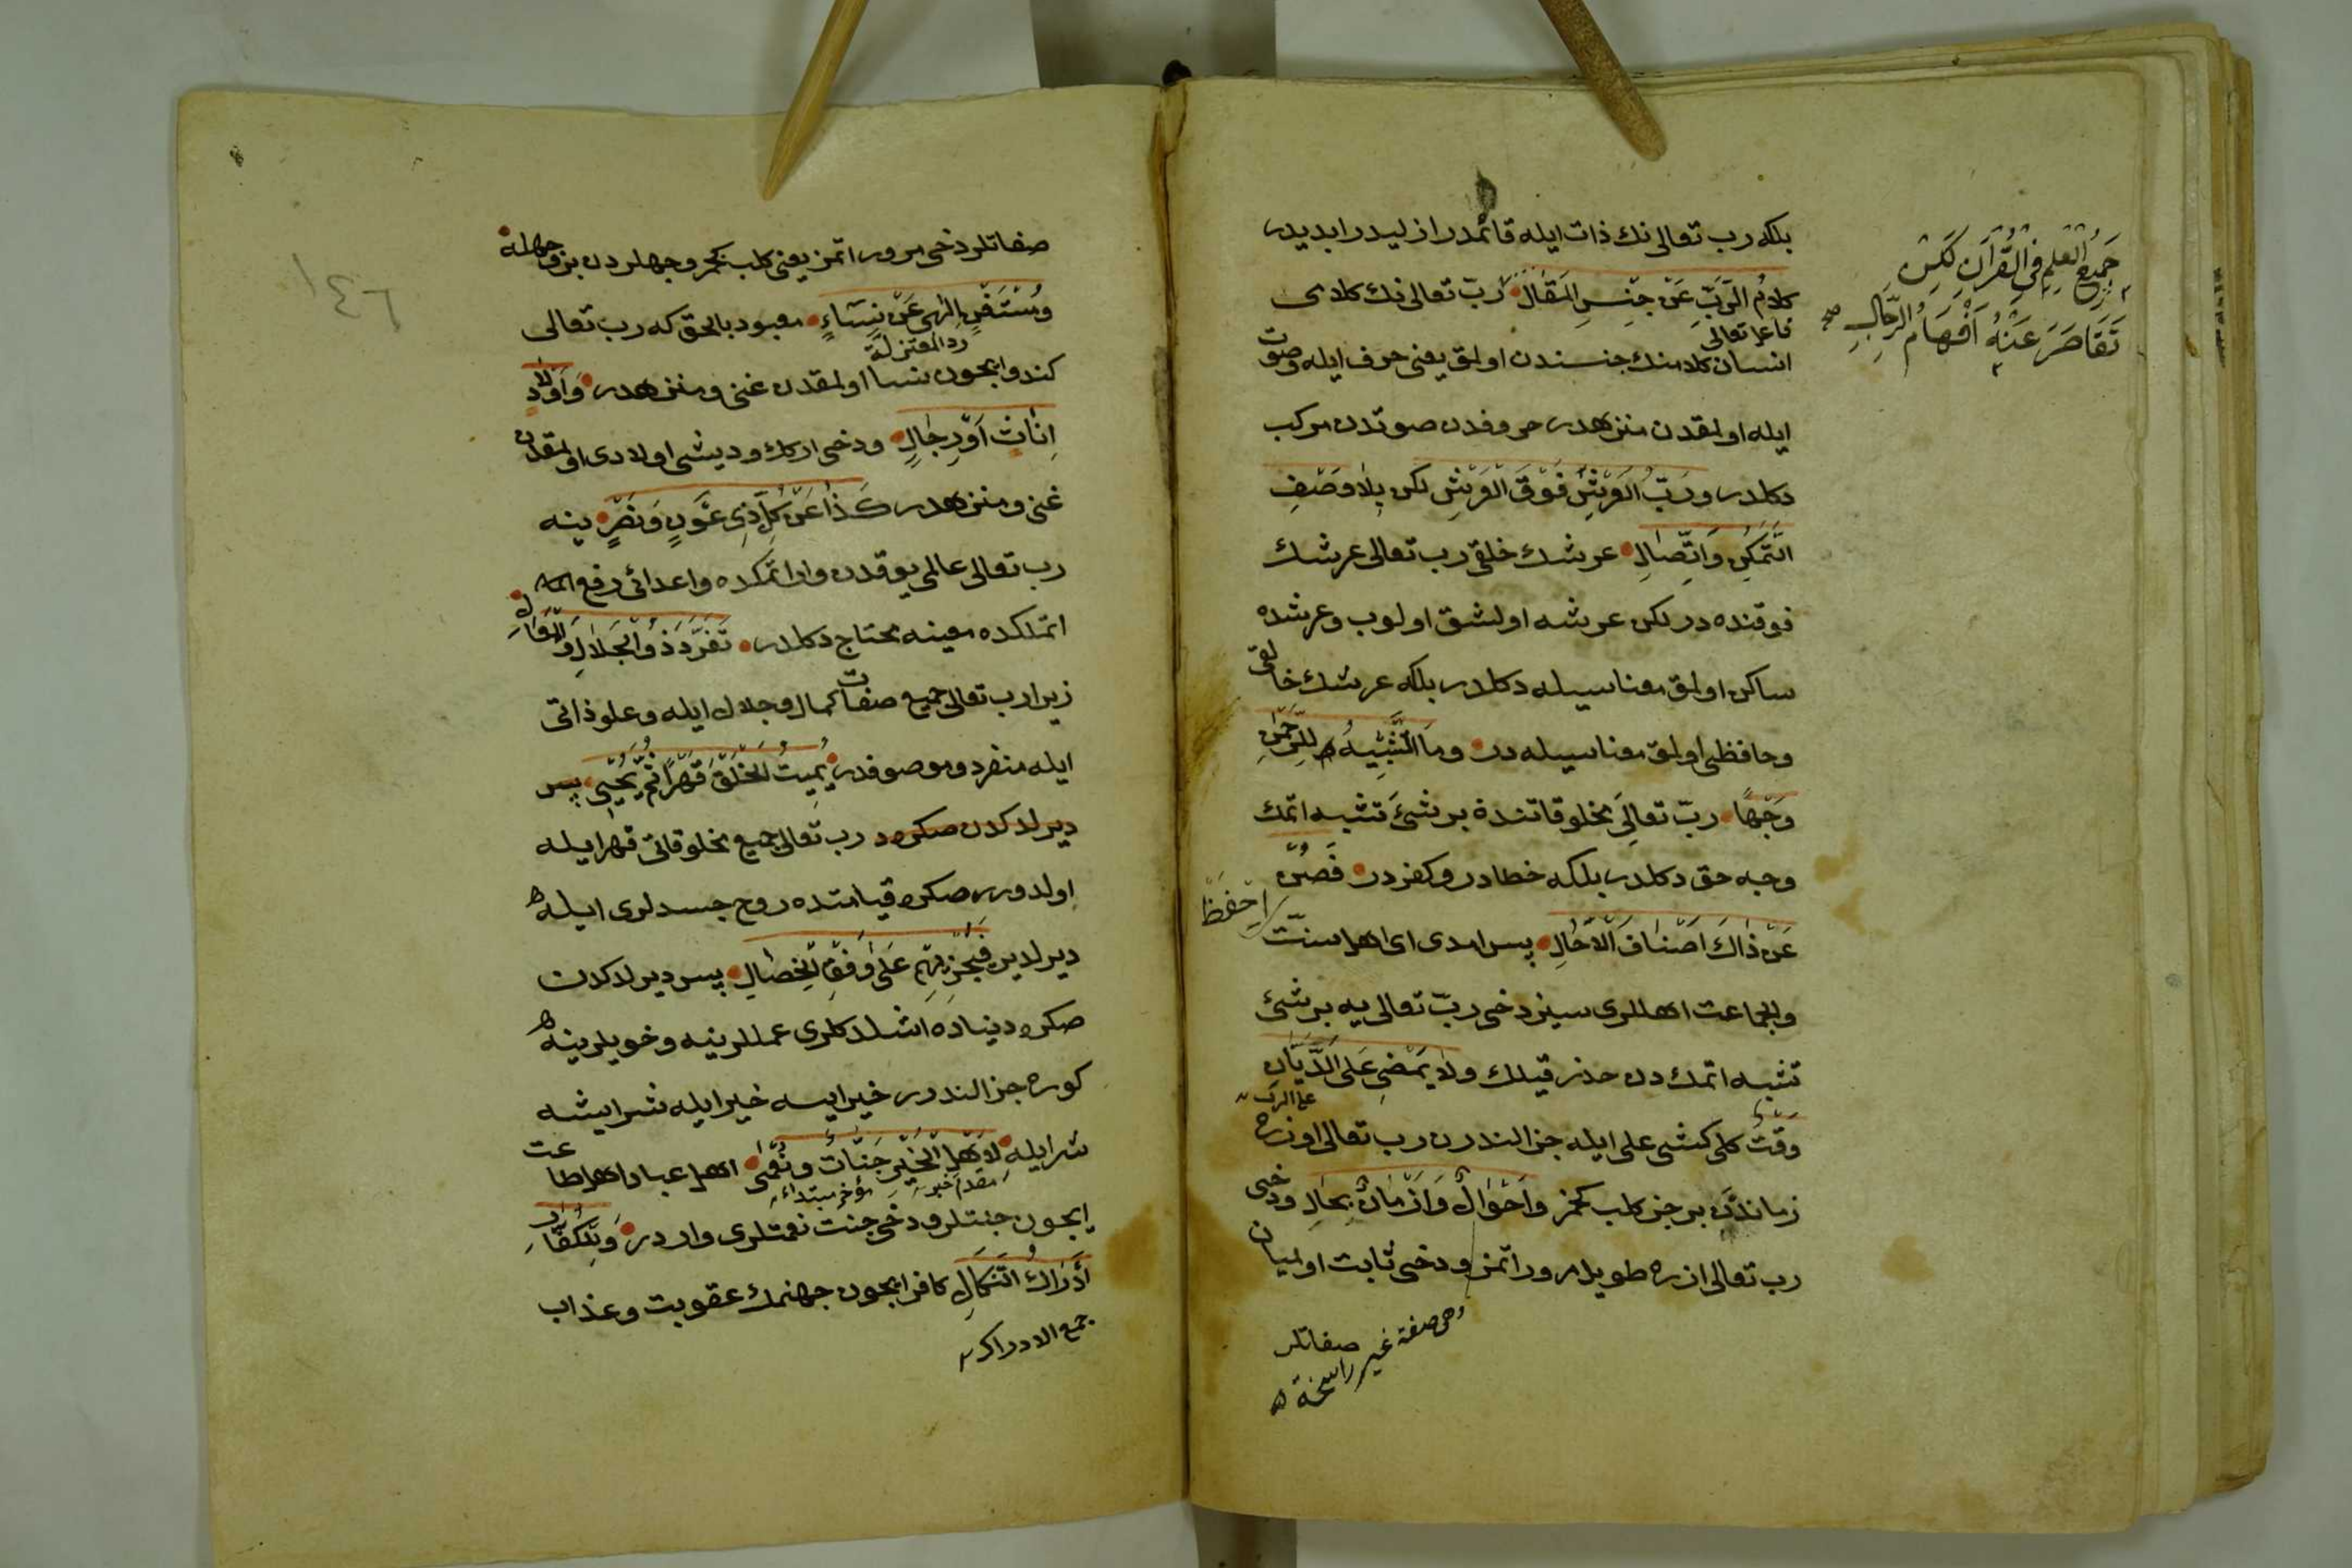 بلكه رب تعالى نك ذات ايله قائمدر ازليدر ابديدر
كلامُ الرَّبِّ عَنْ جِنْسِ المَقَالِ ربّ تعالى نك كلامى
انسان كلامنك جنسندن اولمق يعنى حرف ايله وصوت
ايله اولمقدن منزهدر حروفدن صوتدن مركب
دكلدر وربُّ العَرْشِ فَوْقَ العَرْشِ لكن بِلا وَصْفِ
التَّمَكُّنِ وَاتِّصَالِ عرشك خلقى رب تعالى عرشك
فوقنده در لكن عرشه اولشق اولوب وعرشده
ساكن اولمق معناسيله دكلدر بلكه عرشك خالقى
وحافظى اولمق معناسيله در وما التَّشْبِيهُ للرَّحْمٰنِ
وَجْهًا ربّ تعالى مخلوقاتنده بر شئ تشبيه اتمك
وجه حق دكلدر بلكه خطادر وكفردر فَصُنْ
عَنْ ذَاكَ اَصْنَافَ الاَهَالِ پس امدى اى اهل سنت
والجماعت اهللرى سيز دخى ربّ تعالى يه بر شئ
تشبيه اتمك دن حذر قيلك ولا يَمْضِى عَلَى الدَّيَّانِ
وَقْتٌ كلى كنشى على ايله جزالندرن رب تعالى اوزره
زماندن بر جز كلب كچمز واَحْوَالٌ وَاَزْمَانٌ بِحَالِ ودخى
رب تعالى ازره طويل مرور اتمز ودخى ثابت اولميان
صفاتلر
جَمِيعُ الْعِلْمِ فِى الْقُرْآنِ لٰكِنْ
تَقَاصَرَ عَنْهُ اَفْهَامُ الرِّجَالِ
فاعل تعالى
اِحْفَظْ
على الرب
وهى صفة غير راسخة
صفاتلر دخى مرور اتمز يعنى كلب كچمز وجهلردن بر وجهله
ومُسْتَغْنٍ اِلٰهى عَنْ نِسَاءٍ معبود بالحق كه رب تعالى
رد المعتزلة
كندو ايچون نسا اولمقدن غنى ومنزهدر وَاَوْلادٍ
اِنَاثٍ اَوْ رِجَالٍ ودخى ارك و ديشى اولادى اولمقدن
غنى ومنزهدر كَذَا عَنْ كُلِّ ذِى عَوْنٍ وَنَصْرٍ ينه
رب تعالى عالمى يوقدن وار اتمكده واعدائى رفع
اتملكده معينه محتاج دكلدر تَفَرَّدَ ذُو الْجَلالِ وَالْمَعَالِ
زيرا رب تعالى جميع صفات كمال وجلال ايله وعلو ذاتى
ايله منفرد وموصوفدر يُمِيتُ الْخَلْقَ قَهْرًا ثُمَّ يُحْيِى پس
ديرلدكدن صكره رب تعالى جميع مخلوقاتى قهر ايله
اولدورر صكره قيامتده روح جسدلرى ايله
ديرلدير فَيَجْزِيهِمْ عَلَى وَفْقِ الْخِصَالِ پس ديرلدكدن
صكره دنياده اشلدكلرى عمللرينه وخويلرينه
كوره جزالندرر خير ايسه خير ايله شر ايسه
شر ايله لاَهْلِ الْخَيْرِ جَنَّاتٌ ونُعْمٰى اهل عباد اهل طاعت
مقدم خبر مؤخر مبتدا
ايچون جنتلر و دخى جنت نعمتلرى واردر وَلِلْكُفَّارِ
اَدْرَاكُ النَّكَالِ كافر ايچون جهنمك عقوبت وعذاب
جمع الادراك
١٤٦